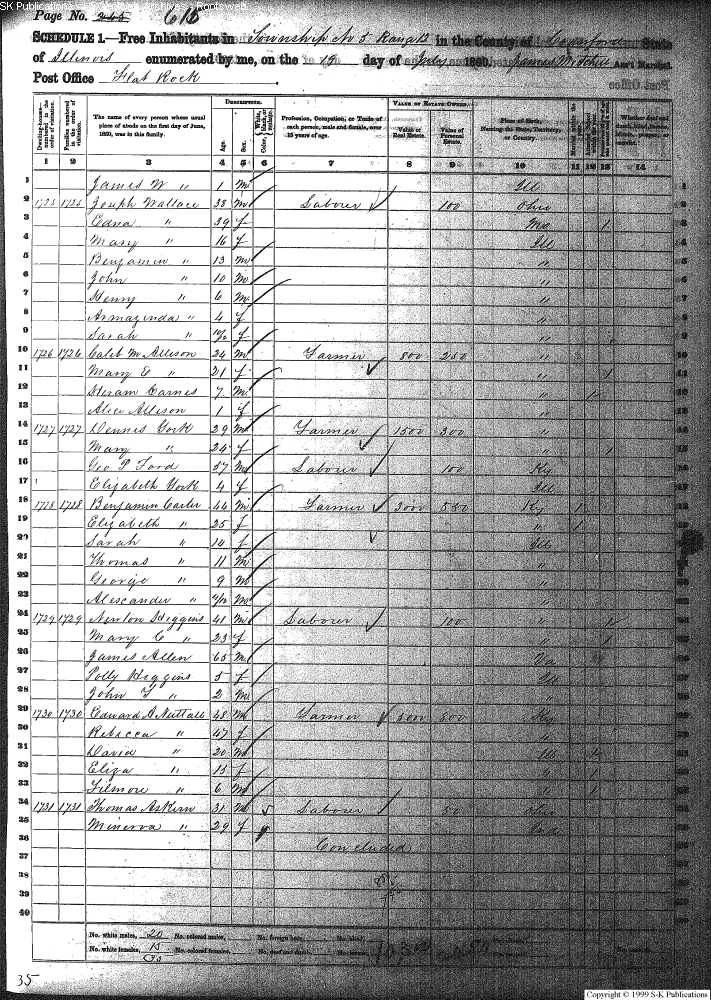 SK Publications
Page No. 245 616
SCHEDULE 1.—Free Inhabitants in Township No 5 Range 12 in the County of Crawford State
of Illinois enumerated by me, on the 19 day of July 1860. James Mitchell Ass't Marshal.
Post Office Flat Rock
Dwelling-houses—numbered in the order of visitation.
Families numbered in the order of visitation.
The name of every person whose usual place of abode on the first day of June, 1860, was in this family.
DESCRIPTION.
Age. Sex. Color, White, black, or mulatto.
Profession, Occupation, or Trade of each person, male and female, over 15 years of age.
VALUE OF ESTATE OWNED.
Value of Real Estate. Value of Personal Estate.
Place of Birth, Naming the State, Territory, or Country.
1 2 3 4 5 6 7 8 9 10 11 12 13 14
1 James W " 1 m Ill
2 1725 1725 Joseph Wallace 38 m Labourer 100 Ohio
3 Edna " 39 f Mo 1
4 Mary " 16 f Ill
5 Benjamin " 13 m "
6 John " 10 m "
7 Henry " 6 m "
8 Armazinda " 4 f "
9 Sarah " f "
10 1726 1726 Caleb M Allison 24 m Farmer 800 250 "
11 Mary E " 21 f " 1
12 Hiram Carnes 7 m " 1
13 Alice Allison 1 f "
14 1727 1727 Dennis York 29 m Farmer 1500 300 "
15 Mary " 24 f " 1
16 Geo P Ford 57 m Labourer 100 Ky
17 Elizabeth York 4 f Ill
18 1728 1728 Benjamin Carter 44 m Farmer 3000 550 Ky 1
19 Elizabeth " 25 f " 1
20 Sarah " 14 f Ill
21 Thomas " 11 m "
22 George " 9 m "
23 Alexander " m "
24 1729 1729 Newton Higgins 41 m Labourer 100 " 1
25 Mary C " 23 f " 1
26 James Allen 65 m Va
27 Polly Higgins 5 f Ill
28 John T " 2 m "
29 1730 1730 Edward A Nuttall 48 m Farmer 5000 500 Ky
30 Rebecca " 47 f "
31 David " 20 m " 1
32 Eliza " 15 f " 1
33 Filmore " 6 m " 1
34 1731 1731 Thomas Askern 31 m Labourer 50 Ohio
35 Minerva " 29 f Ind
36 Concluded
37
38
39
40
No. white males, 20 No. colored males, No. foreign born, No. blind,
No. white females, 15 No. colored females, No. deaf and dumb,
35
Copyright © 1999 S-K Publications